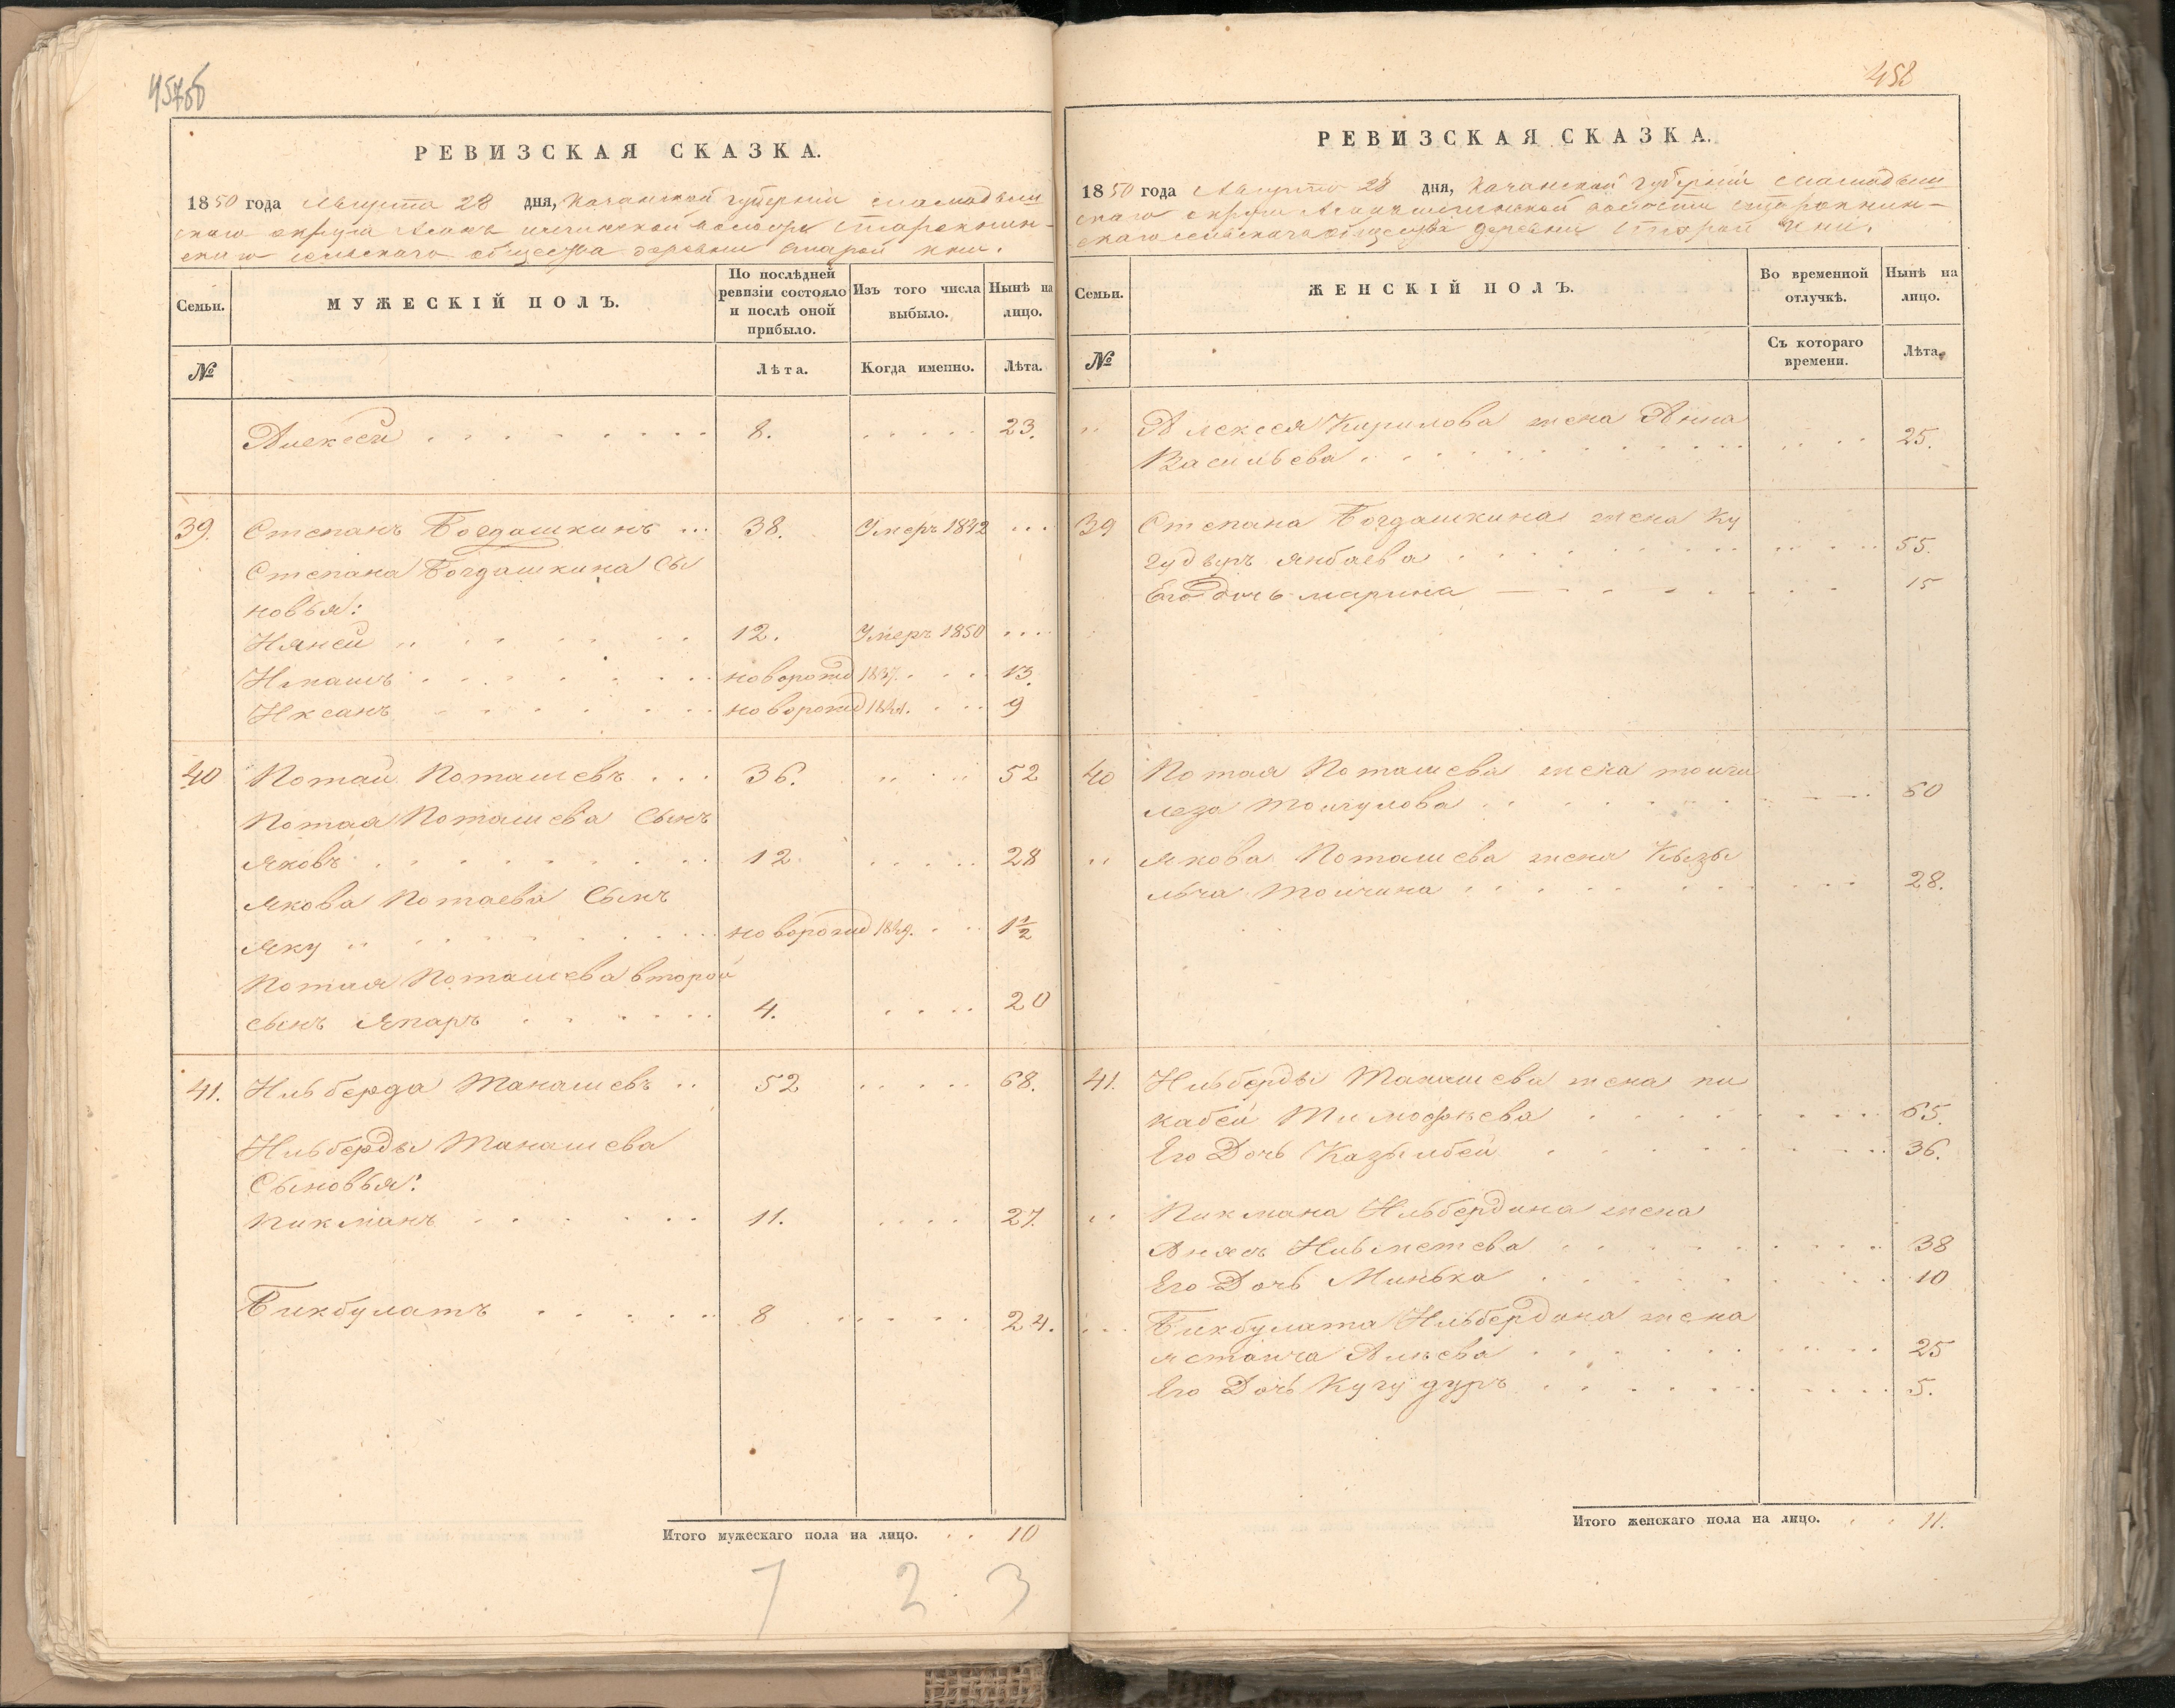 457об
РЕВИЗСКАЯ СКАЗКА.
1850 года Августа 28 дня, Казанской губерніи Мамадыш
скаго округа волости Старокнин-
скаго сельскаго общества деревни Старой кни.
Семьи.
МУЖЕСКІЙ ПОЛЪ.
По послѣдней ревизіи состояло и послѣ оной прибыло.
Изъ того числа выбыло.
Нынѣ на лицо.
№
Лѣта.
Когда именно.
Лѣта.
Алексей . . . 8. . . . 23.
39. Степанъ Богдашкинъ ... 38. Умеръ 1842 ...
Степана Богдашкина Сы
новья:
Няней . . . 12. Умеръ 1850 ...
Ипашъ . . . новорожд 1837. . . 13.
Иксанъ . . . новорожд 1841. . . 9
40 Потай Поташевъ . . . 36. . . . 52
Потая Поташева Сынъ
Яковъ . . . 12. . . . 28
Якова Потаева Сынъ
Яку . . . новорожд 1849. . . 1½
Потая Поташева второй
сынъ Япаръ . . . 4. . . . 20
41. Ильберда Манашевъ .. 52 . . . 68.
Ильберды Манашева
Сыновья:
Пикманъ . . . 11. . . . 27.
Бикбулатъ . . . 8 . . . 24.
Итого мужескаго пола на лицо. . . 10
7 2 3
458
РЕВИЗСКАЯ СКАЗКА.
1850 года Августа 28 дня, Казанской губерніи Мамадыш
скаго округа волости Старокнин-
скаго сельскаго общества деревни Старой Кни.
Семьи.
ЖЕНСКІЙ ПОЛЪ.
Во временной отлучкѣ.
Нынѣ на лицо.
№
Съ котораго времени.
Лѣта.
Алексея Кирилова жена Анна
Васильева . . . 25.
39 Степана Богдашкина жена Ку
гудыръ Янбаева . . . 55.
Его дочь Марина . . . 15
40 Потая Поташева жена
Тойгулова . . . 60
Якова Поташева жена Кызы
льча Тойчина . . . 28.
41. Ильберды Манашева жена пи
кабей Тимофѣева . . . 65.
Его Дочь Казылбей . . . 36.
Пикмана Ильбердина жена
Анясъ Ильметева . . . 38
Его Дочь Минька . . . 10
Бикбулата Ильбердина жена
Ястанча Алѣева . . . 25
Его Дочь Кугудуръ . . . 5.
Итого женскаго пола на лицо. . . 11.